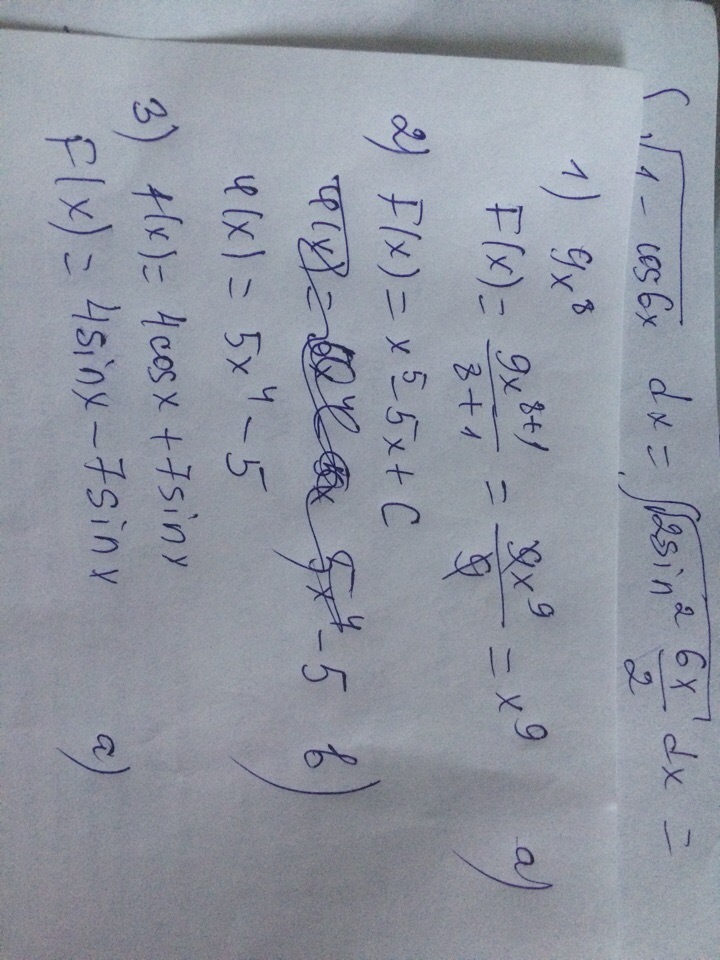 ∫√(1 - cos6x) dx = ∫√(2sin² 6x/2) dx =
1) 9x⁸
F(x) = 9x⁸⁺¹/8+1 = 9x⁹/9 = x⁹ a)
2) F(x) = x⁵ - 5x + C
φ(x) = 5x⁴ - 5 b)
φ(x) = 5x⁴ - 5
3) f(x) = 4cosx + 7sinx
F(x) = 4sinx - 7sinx a)